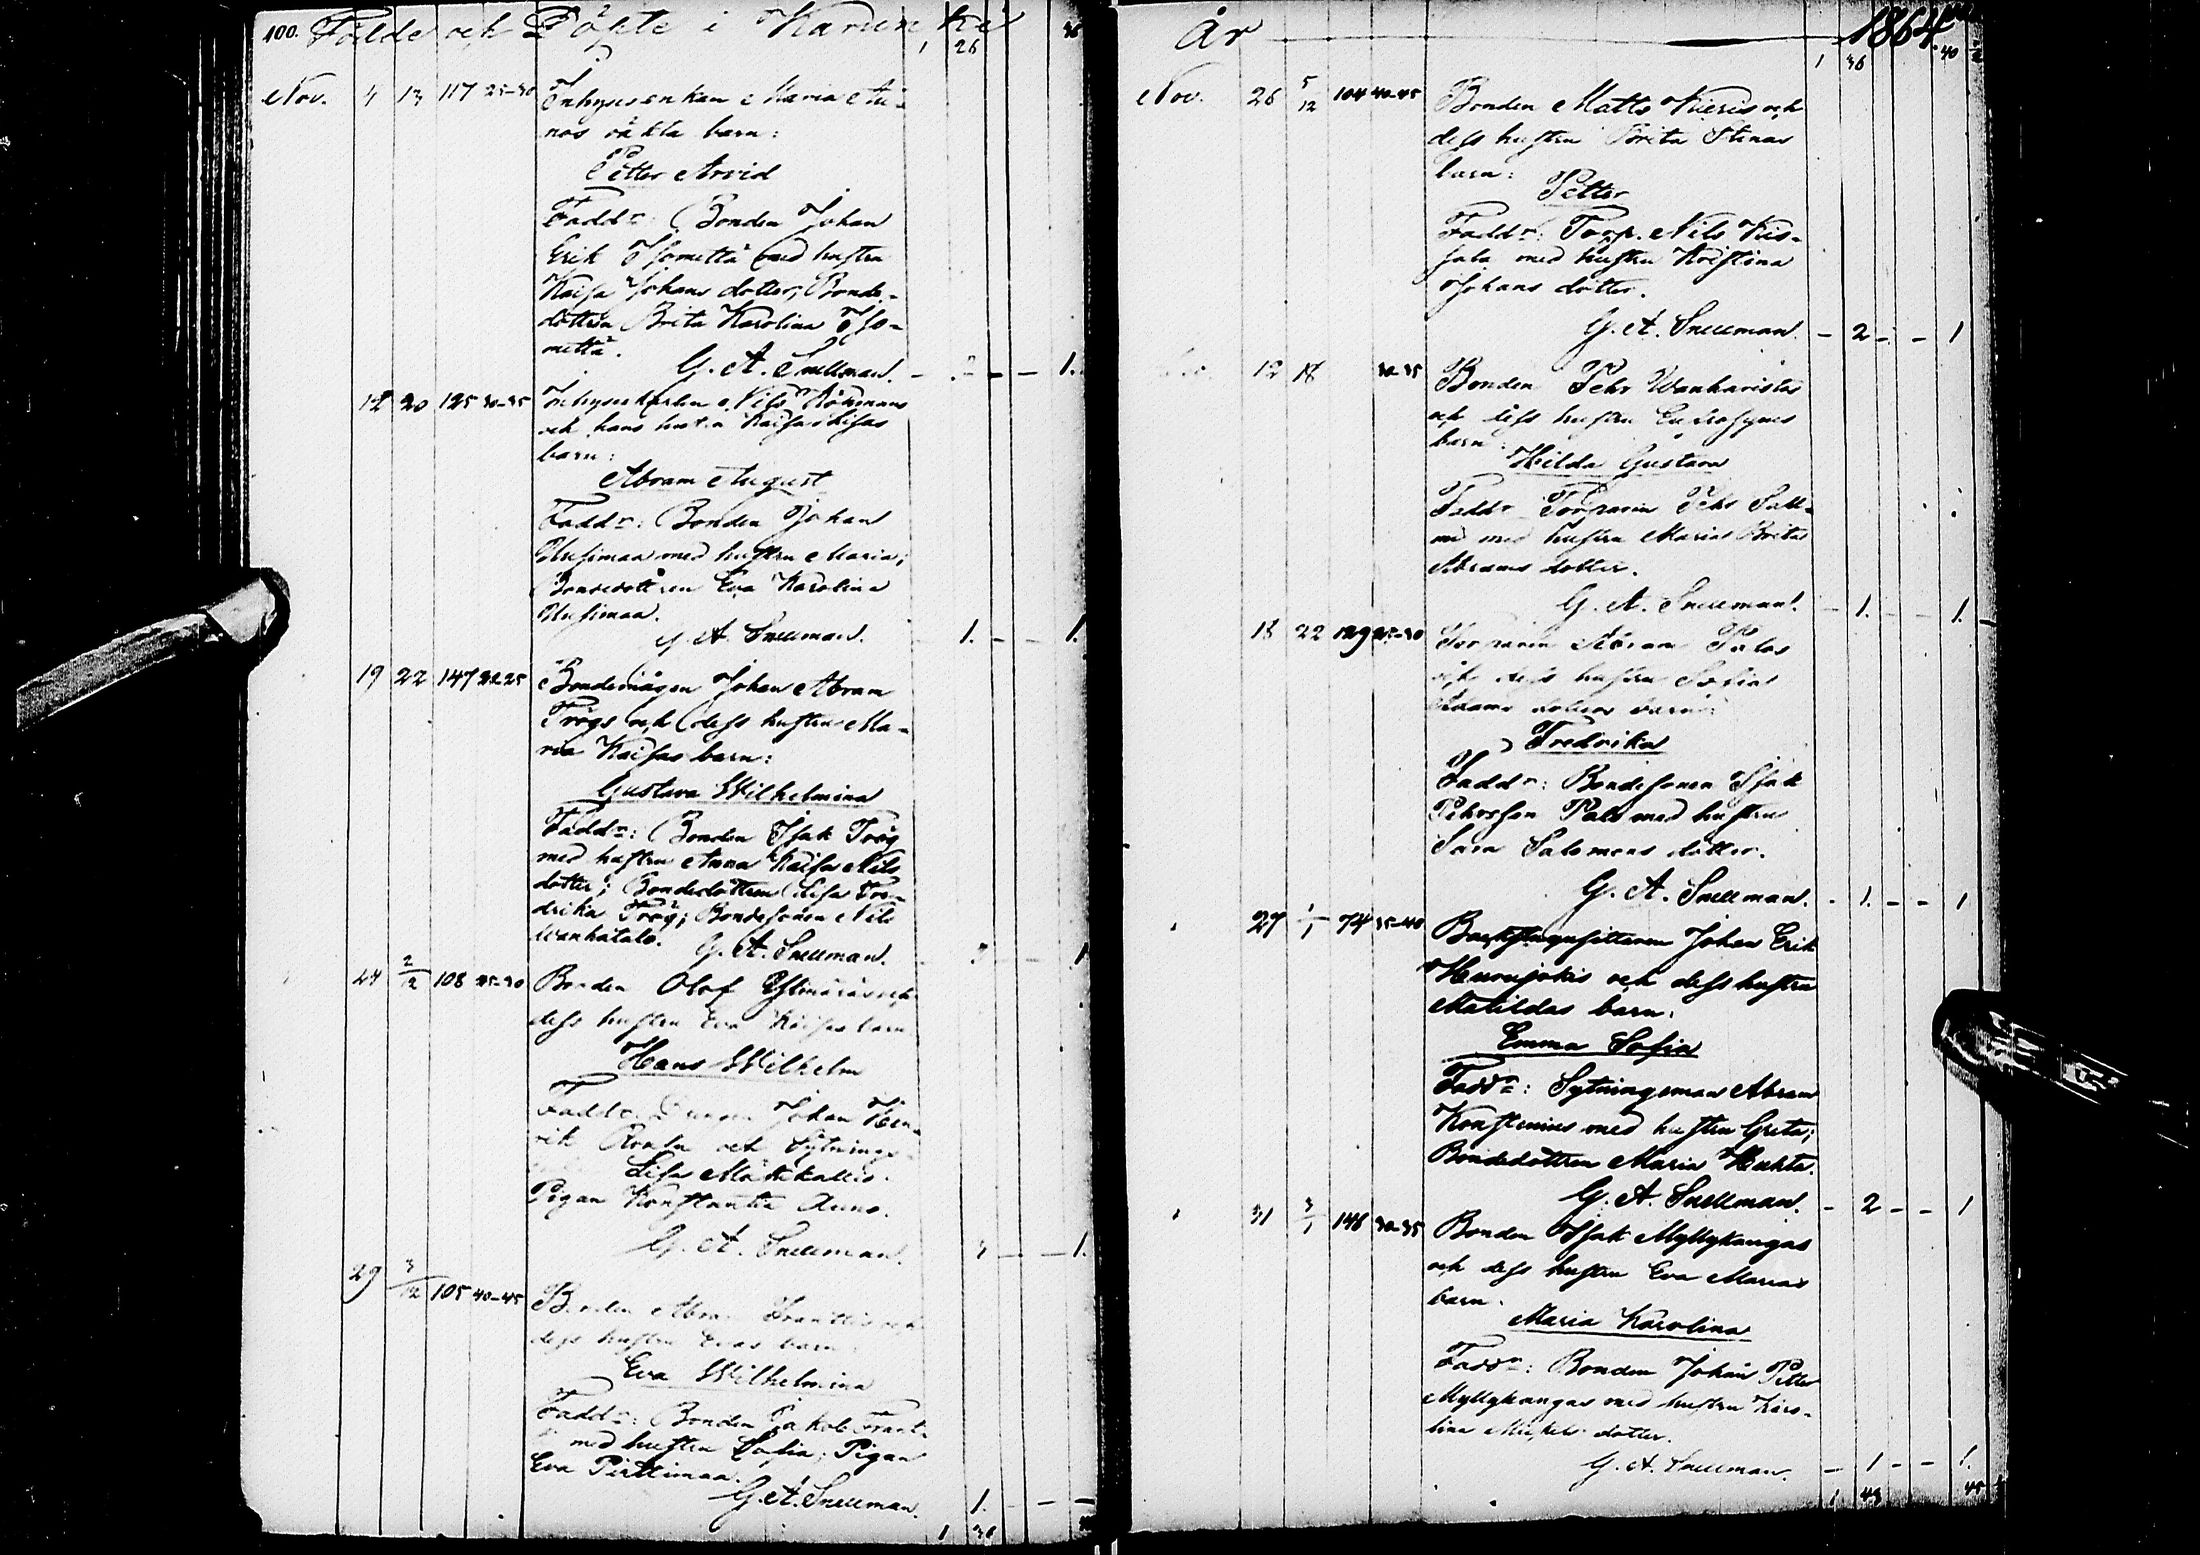 100. Födde och Döpte i Karunki
1 26 36
Nov. 4 13 117 25-30 Inhysesenkan Maria Au-
nos oäkta barn:
Petter Arvid
Faddr: Bonden Johan
Erik Isomettä med hustru
Kaisa Johans dotter; Bonde-
dottren Brita Karolina Iso-
mettä.
G. A. Snellman. - - - 1.
12 20 125 30-35 Inhyses karlen Nils
och hans hustru Kaisa Lisas
barn:
Abram August
Faddr: Bonden Johan
Uusimaa med hustru Maria;
Bondedottren Eva Karolina
Uusimaa.
G. A. Snellman. 1. - 1.
19 22 147 22-25 Bondemågen Johan Abram
Frögs och dess hustru Ma-
ria Kaisas barn:
Gustava Wilhelmina
Faddr: Bonden Isak Frög
med hustru Anna Kaisa Nils
dotter; Bondedottren Lisa Fre-
drika Frög; Bondesonen Nils
Wanhatalo.
G. A. Snellman. 1
24 2/12 108 25-30 Bonden Olof och
dess hustru Eva Kaisas barn
Hans Wilhelm
Faddr: Johan Hen-
rik och Sytnings-
Lisa Mäkikallio.
Pigan Konstantia Auno.
G. A. Snellman. - 1.
29 3/12 105 40-45 Bonden Abram och
dess hustru Evas barn:
Eva Wilhelmina
Faddr: Bonden Jakob Frant-
med hustru Sofia; Pigan
Eva Pirttimaa.
G. A. Snellman. 1. - -
1 36
År 1864
1 36 40
Nov. 26 5/12 104 40-45 Bonden Matts Kieris och
dess hustru Brita Stinas
barn:
Petter
Faddr: Torp. Nils Kus-
sala med hustru Kristina
Johans dotter.
G. A. Snellman. - 2 - - 1
12 18 30-35 Bonden Pehr Wanharistas
och dess hustru Eufrosynes
barn:
Hilda Gustava
Faddr Torparen Pehr
med hustru Maria Brita
Abrams dotter.
G. A. Snellman. - 1. - - 1.
18 22 129 25-30 Torparen Abram Palos
och dess hustru Sofia
Adams dotters barn:
Fredrika
Faddr: Bondesonen Isak
Pehrsson Palo med hustru
Sara Salomons dotter.
G. A. Snellman. - 1. - - 1
27 1/1 74 35-40 Backstugusittaren Johan Erik
Kurujokis och dess hustru
Matildas barn:
Emma Sofia
Faddr: Sytningsman Abram
Konstenius med hustru Greta;
Bondedottren Maria Huhta.
G. A. Snellman. - 2 - - 1
31 3/1 146 30-35 Bonden Isak Myllykangas
och dess hustru Eva Marias
barn.
Maria Karolina
Faddr: Bonden Johan Petter
Myllykangas med hustru Karo-
lina Mickels dotter.
G. A. Snellman. - 1 - - 1.
1 43 45